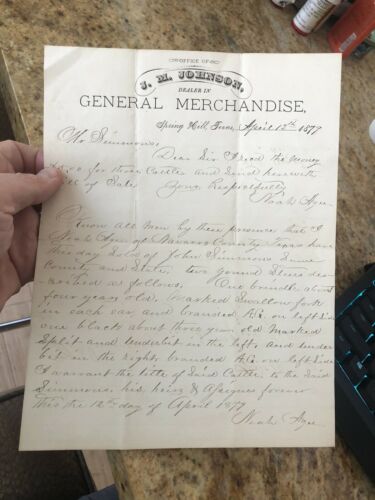 OFFICE OF
J. M. JOHNSON,
DEALER IN
GENERAL MERCHANDISE,
Spring Hill, Texas, April 12th 1879
Mr Simmons
Dear Sir I recd the money
for those Cattle and send herewith
Bill of Sale Yours Respectfully
Noah
Know all Men by these presence that I
Noah of Navarro County Texas have
this day Sold of John Simmons Same
County and State, two yound Steers des
cribed as follows. One brindle about
four years old, marked Swallow fork
in each ear and branded on left side
one black about three year old Marked
Split and underbit in the left, and under
bit in the right, branded on left side
I warrant the title of Said Cattle to the Said
Simmons his heirs & Assignes forever
this the 12th day of April 1879
Noah